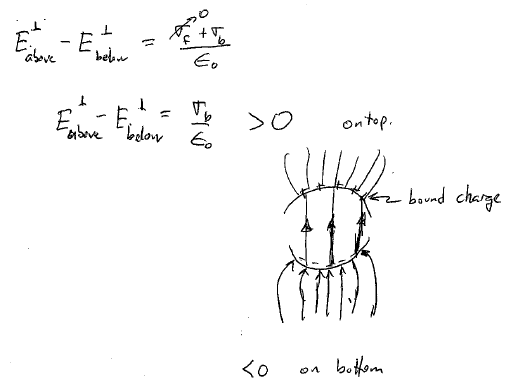 E⊥above − E⊥below = σf→0 + σb / ε₀
E⊥above − E⊥below = σb / ε₀ > 0 on top.
bound charge
<0 on bottom